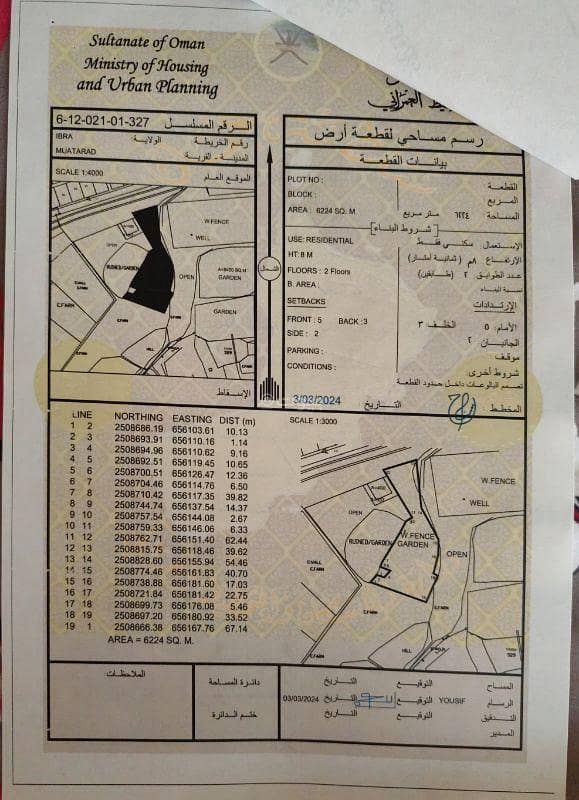 Sultanate of Oman
Ministry of Housing
and Urban Planning
6-12-021-01-327 الرقم المسلسل
IBRA الولاية: رقم الخريطة
MUATARAD المدينة - القرية
SCALE 1:4000 الموقع العام
W.FENCE
WELL
OPEN
RUINED/GARDEN
OPEN
A=8400 SQ.M
GARDEN
GARDEN
E.FARM
E.FARM
HILL
الإسقاط
الشمال
رسم مساحي لقطعة أرض
بيانات القطعة
PLOT NO : القطعة
BLOCK : المربع
AREA : 6224 SQ. M متر مربع ٦٢٢٤ المساحة
شروط البناء
USE: RESIDENTIAL الإستعمال سكني فقط
HT: 8 M الإرتفاع ٨م (ثمانية أمتار)
FLOORS : 2 Floors عدد الطوابق ٢ (طابقين)
B. AREA : نسبة البناء
SETBACKS الإرتدادات
FRONT : 5 BACK : 3 الأمام: ٥ الخلف ٣
SIDE : 2 الجانبان ٢
PARKING : موقف:
CONDITIONS : شروط أخرى
تصمم البالوعات داخل حدود القطعة
3/03/2024 التاريخ المخطط
LINE NORTHING EASTING DIST (m)
1 2 2508686.19 656103.61 10.13
2 3 2508693.91 656110.16 1.14
3 4 2508694.96 656110.62 9.16
4 5 2508692.51 656119.45 10.65
5 6 2508700.51 656126.47 12.36
6 7 2508704.46 656114.76 6.50
7 8 2508710.42 656117.35 39.82
8 9 2508744.74 656137.54 14.37
9 10 2508757.54 656144.08 2.67
10 11 2508759.33 656146.06 6.33
11 12 2508762.71 656151.40 62.44
12 13 2508815.75 656118.46 39.62
13 14 2508828.60 656155.94 54.46
14 15 2508774.46 656161.83 40.70
15 16 2508738.88 656181.60 17.03
16 17 2508721.84 656181.42 22.75
17 18 2508699.73 656176.08 5.46
18 19 2508697.20 656180.92 33.52
19 1 2508666.38 656167.76 67.14
AREA = 6224 SQ. M.
SCALE 1:3000
W.FENCE
WELL
OPEN
W.FENCE
GARDEN
RUINED/GARDEN
OPEN
E.WALL
E.FARM
E.FARM
E.FARM
HILL
529
الملاحظات
دائرة المساحة
ختم الدائرة
المساح التوقيع التاريخ
الرسام YOUSIF التوقيع التاريخ 03/03/2024
التدقيق التوقيع التاريخ
المدير